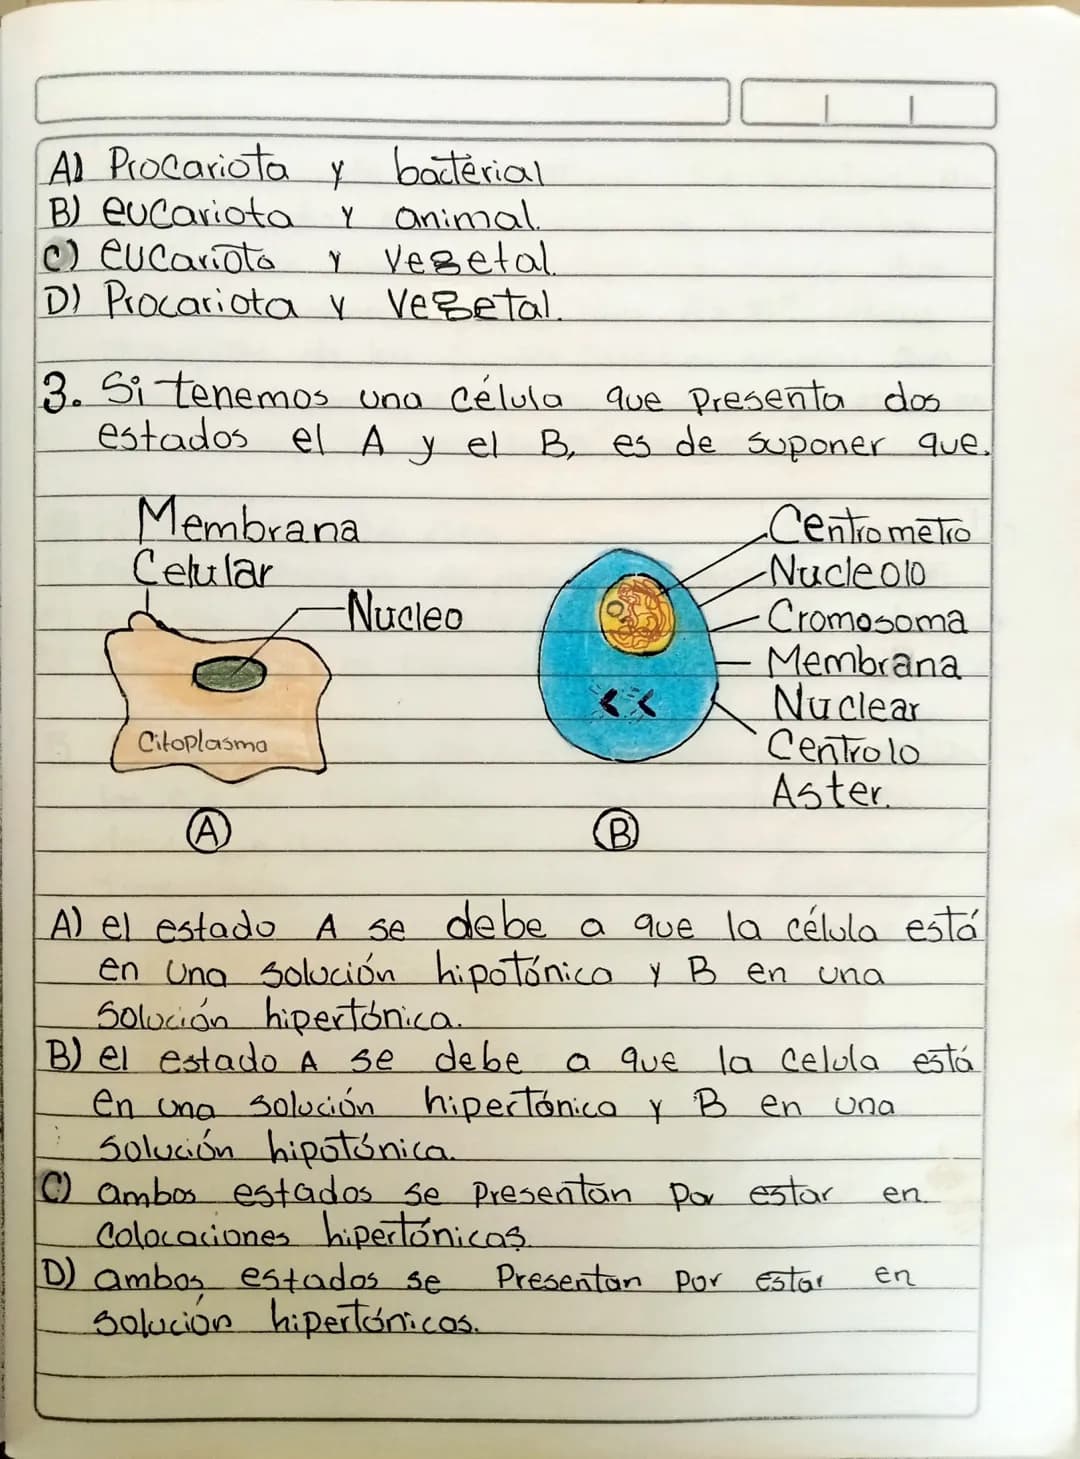 A) Procariota y bacterial
B) eucariota y animal.
C) eucariota y vegetal.
D) Procariota y vegetal.
3. Si tenemos una célula que presenta dos
estados el A y el B, es de suponer que.
Membrana
Celular
Nucleo
Citoplasma
A
Centrometro
Nucleolo
Cromosoma
Membrana
Nuclear
Centrolo
Aster.
B
A) el estado A se debe a que la célula está
en una solución hipotónica y B en una
solución hipertónica.
B) el estado A se debe a que la celula está
en una solución hipertónica y B en una
solución hipotónica.
C) ambos estados se presentan por estar en
colocaciones hipertónicas.
D) ambos estados se Presentan por estar en
solución hipertónicas.